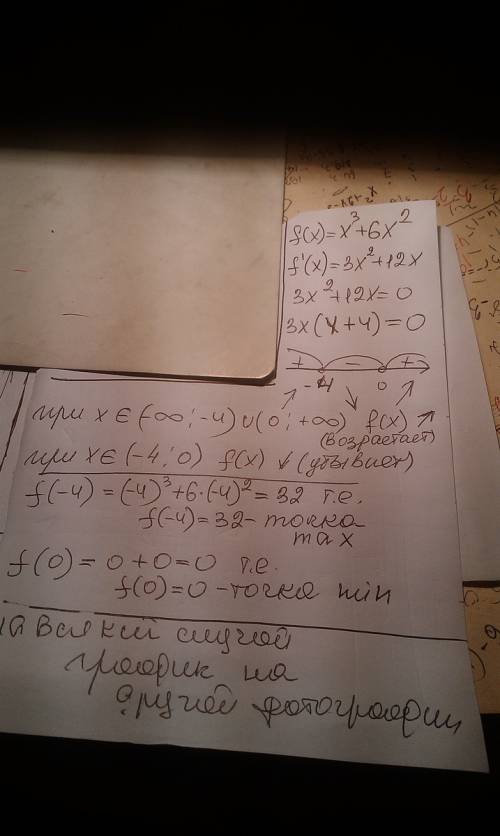 f(x)=x³+6x²
f'(x)=3x²+12x
3x²+12x=0
3x(x+4)=0
+ - +
-4 0
при x∈(-∞;-4)∪(0;+∞) f(x) ↗
(возрастает)
при x∈(-4;0) f(x) ↓ (убывает)
f(-4)=(-4)³+6·(-4)²=32 т.е.
f(-4)=32-точка
max
f(0)=0+0=0 т.е.
f(0)=0-точка min
на всякий случай
график на
другой фотографии